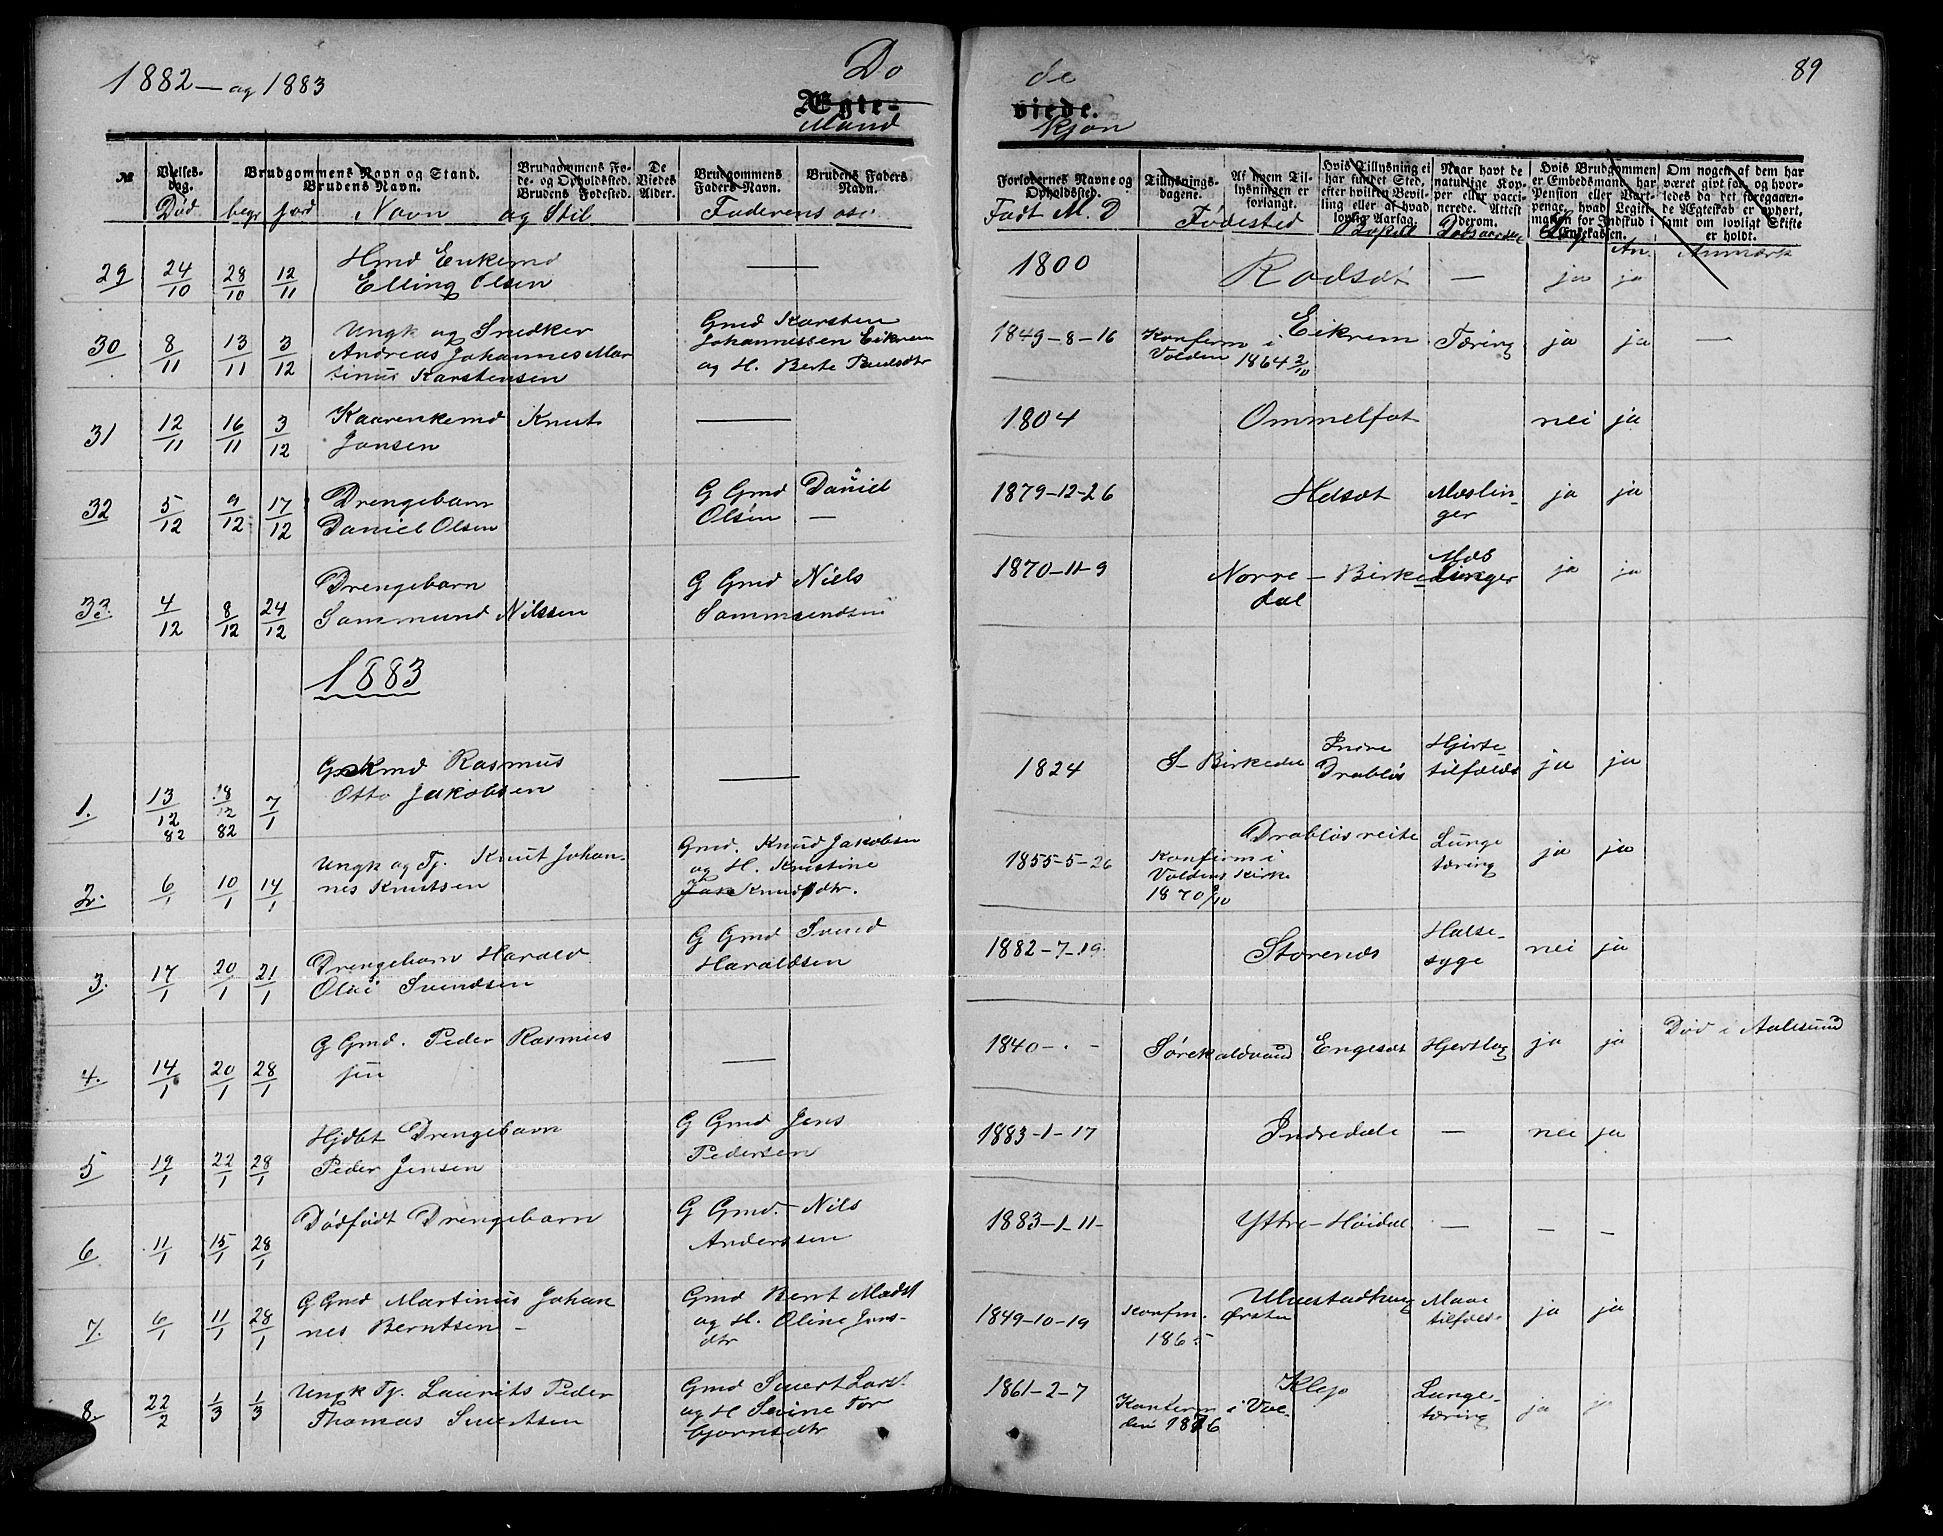 1882 — og 1883
Dø
de
89
Ægte-
viede.
Mand
kjøn
№
Vielses-
dag.
Brudgommens Navn og Stand.
Brudens Navn.
Brudgommens Fø-
de- og Opholdssted.
Brudens Fødested.
De
Viedes
Alder.
Brudgommens
Faders Navn.
Brudens Faders
Navn.
Forlovernes Navne og
Opholdssted.
Tillysnings-
dagene.
Af hvem Til-
lysningen er
forlangt.
Hvis Tillysning ei
har fundet Sted,
efter hvilken Bevil-
ling eller af hvad
lovlig Aarsag.
Naar havt de
naturlige Kop-
per eller vacci-
nerede. Attest
derom.
Hvis Brudgommen
er Embedsmand, har
Pension eller Vart-
penge, hvad Legiti-
mation for Indskud i
Enkekassen.
Om nogen af dem har
været gift før, og hvor-
ledes da det foregaaen-
de Ægteskab er ophørt,
samt om lovligt Skifte
er holdt.
Død begr jord Navn og Stil Faderens
Født M. D Fødested Bopæl Dødsaarsag An. Anmærk
29 24/10 28/10 12/11 Hmd Enkemd
Elling Olsen — 1800 Rodsæt — ja ja
30 8/11 13/11 3/12 Ungk og Snedker
Andreas Johannes Mar
tinus Karstensen
Gmd Karsten
Johannessen Eikrem
og H. Berte Paulsdtr
1849-8-16 Konferm i
Volden
1864 2/10
Eikrem Tæring ja ja —
31 12/11 16/11 3/12 Kaarenkemd Knut
Jonsen — 1804 Ommelfot nei ja
32 5/12 9/12 17/12 Drengebarn
Daniel Olsen
G Gmd Daniel
Olsen —
1879-12-26 Helsæt Mæslin-
ger ja ja
33. 4/12 8/12 24/12 Drengebarn
Sammund Nilssen
G Gmd Niels
Sammundsen
1870-11-9 Norre - Birke
dal
Mæs
linger ja ja
1883
1. 13/12 82 18/12 82 7/1 Rasmus
Otto Jakobsen — 1824 S- Birkedal Indre
Drabløs
Hjerte-
tilfælde ja ja
2. 6/1 10/1 14/1 Ungk og Tj. Knut Johan-
nes Knutsen
Gmd. Knud Jakobsen
og H. Kristine
Knudsdtr.
1855-5-26 Konferm i
Voldens Kirke
1870 9/10
Drabløsreite Lunge
tæring ja ja
3. 17/1 20/1 21/1 Drengebarn Harald
Olai Svendsen
G Gmd Svend
Haraldsen
1882-7-19. Storenes Halse-
syge nei ja
4. 14/1 20/1 28/1 G Gmd. Peder Rasmus
sen — 1840 - . - Sørekaldvand Engesæt Hjertlag ja ja Død i Aalesund
5 19/1 22/1 28/1 Hjdbt Drengebarn
Peder Jensen
G Gmd Jens
Pedersen
1883-1-17 Indredale — nei ja
6 11/1 15/1 28/1 Dødfødt Drengebarn
G Gmd. Nils
Anderssen
1883-1-11- Yttre-Høidal — — —
7. 6/1 11/1 28/1 G Gmd Martinus Johan
nes Berntsen -
Gmd Bernt Madst
og H. Oline Jons-
dtr
1849-10-19 Konfm.
1865
Ørsten Mave
tilfæld. ja ja
8. 22/2 1/3 1/3 Ungk Tj. Laurits Peder
Thomas Sivertsen
Gmd Sivert Larst
og H Sevine Tor
bjørnsdtr
1861-2-7 Konferm i Vol-
den 1876
Klep Lunge-
tæring ja ja